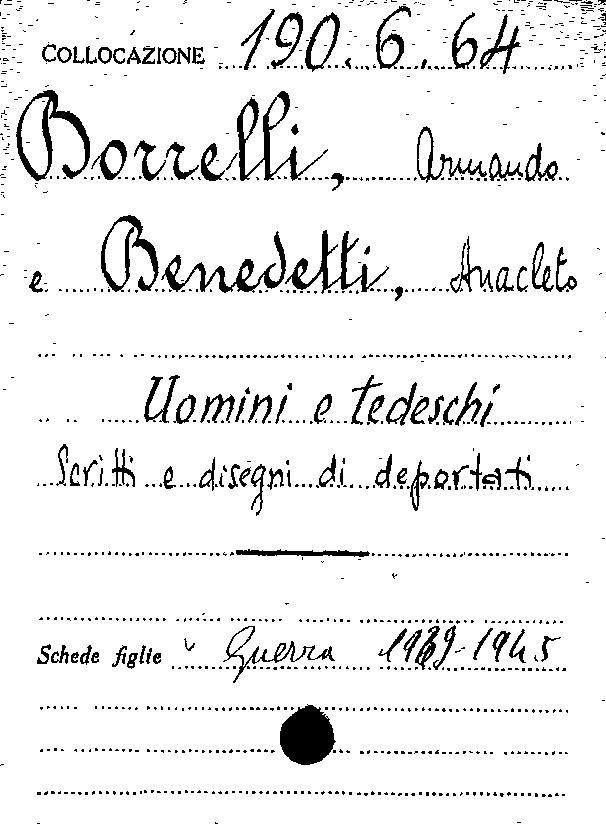 COLLOCAZIONE 190.6.64
Borrelli, Armando
e Benedetti, Anacleto
Uomini e tedeschi
Scritti e disegni di deportati
Schede figlie Guerra 1939-1945